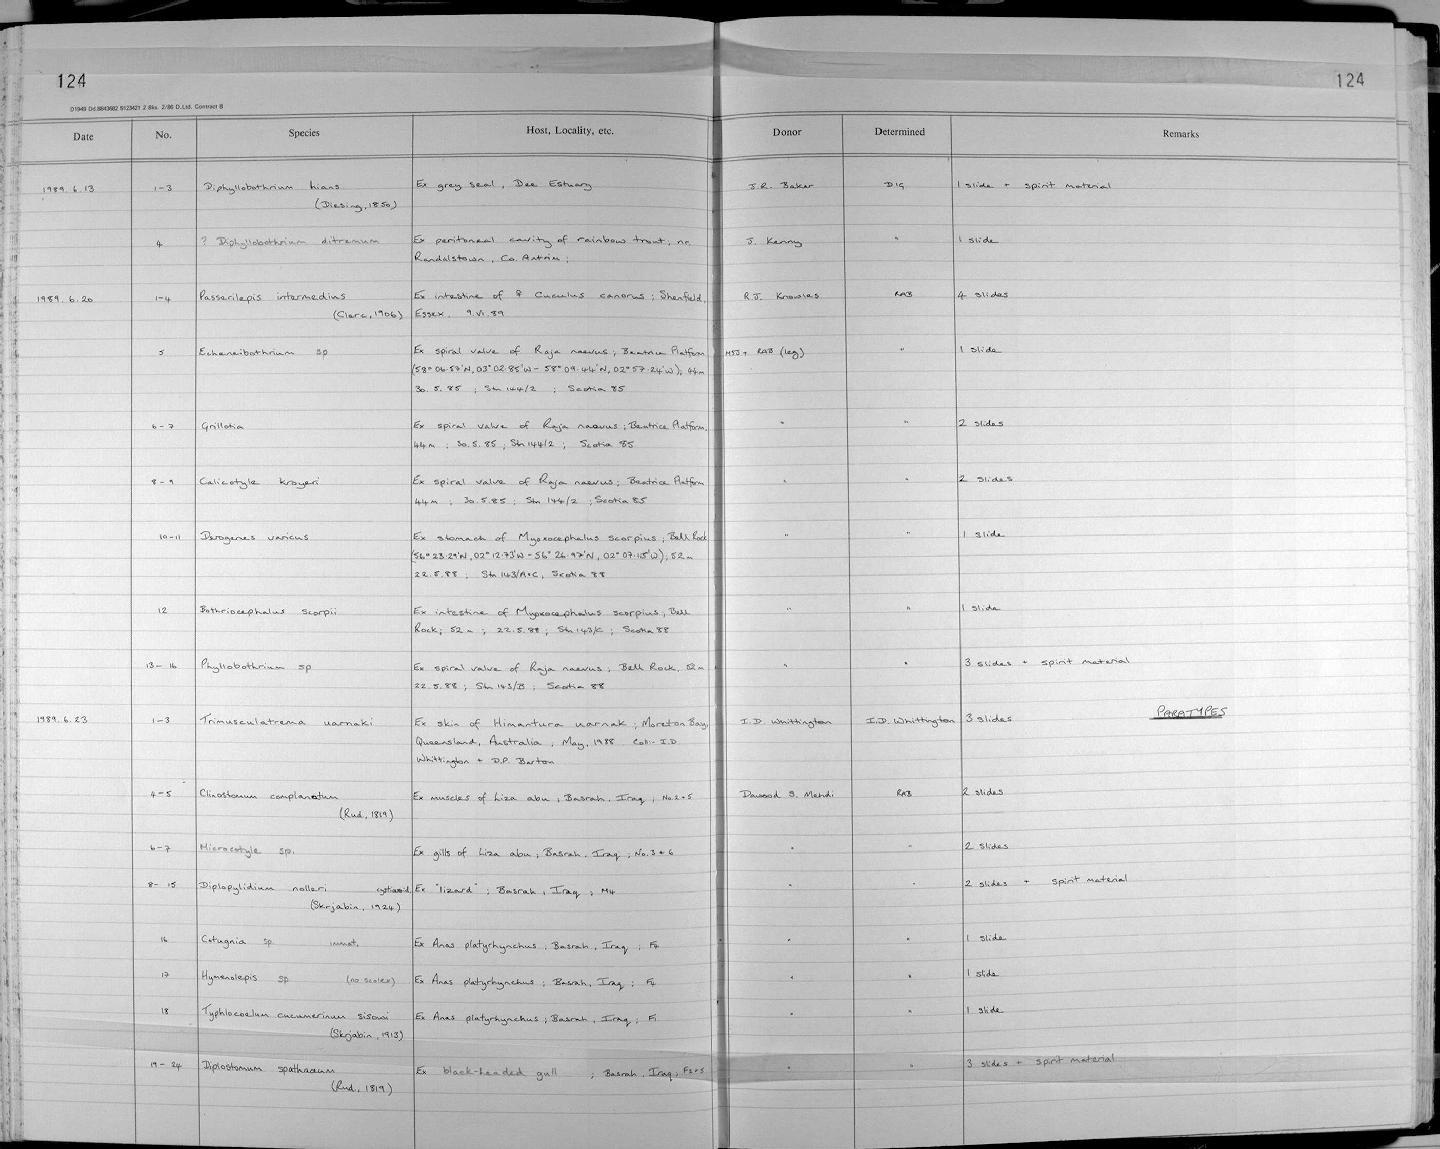 124
124
D1949 Dd.8843682 S123421 2 Bks. 2/86 D.Ltd. Contract B
Date No. Species Host, Locality, etc. Donor Determined Remarks
1989.6.13 1-3 Diphyllobothrium hians Ex grey seal, Dee Estuary J.R. Baker DIG 1 slide + spirit material
(Diesing, 1850)
4 ? Diphyllobothrium ditremum Ex peritoneal cavity of rainbow trout, nr. J. Kenny " 1 slide
Randalstown, Co. Antrim;
1989.6.20 1-4 Passerilepis intermedius Ex intestine of ♀ Cuculus canorus; Shenfield, R.J. Knowles RAB 4 slides
(Clerc, 1906) Essex. 9.vi.89
5 Echeneibothrium sp Ex spiral valve of Raja naevus; Beatrice Platform MSJ + RAB (leg) " 1 slide
(58° 06.57'N, 03° 02.85'W - 58° 09.44'N, 02° 57.24'W), 44m
30.5.85 ; Stn 144/2 ; Scotia 85
6-7 Grillotia Ex spiral valve of Raja naevus; Beatrice Platform, " " 2 slides
44m ; 30.5.85 ; Stn 144/2 ; Scotia 85
8-9 Calicotyle kroyeri Ex spiral valve of Raja naevus; Beatrice Platform " " 2 slides
44m ; 30.5.85 ; Stn 144/2 ; Scotia 85
10-11 Derogenes varicus Ex stomach of Myoxocephalus scorpius; Bell Rock " " 1 slide
(56° 23.29'N, 02° 12.73'W - 56° 26.97'N, 02° 07.15'W), 52m
22.5.88 ; Stn 143/A+C, Scotia 88
12 Bothriocephalus scorpii Ex intestine of Myoxocephalus scorpius; Bell " " 1 slide
Rock; 52m ; 22.5.88 ; Stn 143/C ; Scotia 88
13-16 Phyllobothrium sp Ex spiral valve of Raja naevus; Bell Rock, 52m " " 3 slides + spirit material
22.5.88 ; Stn 143/B ; Scotia 88
1989.6.23 1-3 Trimusculatrema uarnaki Ex skin of Himantura uarnak; Moreton Bay, I.D. Whittington I.D. Whittington 3 slides PARATYPES
Queensland, Australia, May, 1988 Coll:- I.D.
Whittington + D.P. Barton
4-5 Clinostomum complanatum Ex muscles of Liza abu; Basrah, Iraq; No. 2+5 Dawood S. Mehdi RAB 2 slides
(Rud., 1819)
6-7 Microcotyle sp. Ex gills of Liza abu; Basrah, Iraq; No. 3 + 6 " " 2 slides
8-15 Diplopylidium nolleri cysticercoid Ex "lizard" ; Basrah, Iraq ; M4 " " 2 slides + spirit material
(Skrjabin, 1924)
16 Cotugnia sp immat. Ex Anas platyrhynchus; Basrah, Iraq ; F4 " " 1 slide
17 Hymenolepis sp (no scolex) Ex Anas platyrhynchus; Basrah, Iraq ; F4 " " 1 slide
18 Typhlocoelum cucumerinum sisowi Ex Anas platyrhynchus; Basrah, Iraq; F1 " " 1 slide
(Skrjabin, 1913)
19-24 Diplostomum spathaceum Ex black-headed gull ; Basrah, Iraq; F2+5 " " 3 slides + spirit material
(Rud., 1819)